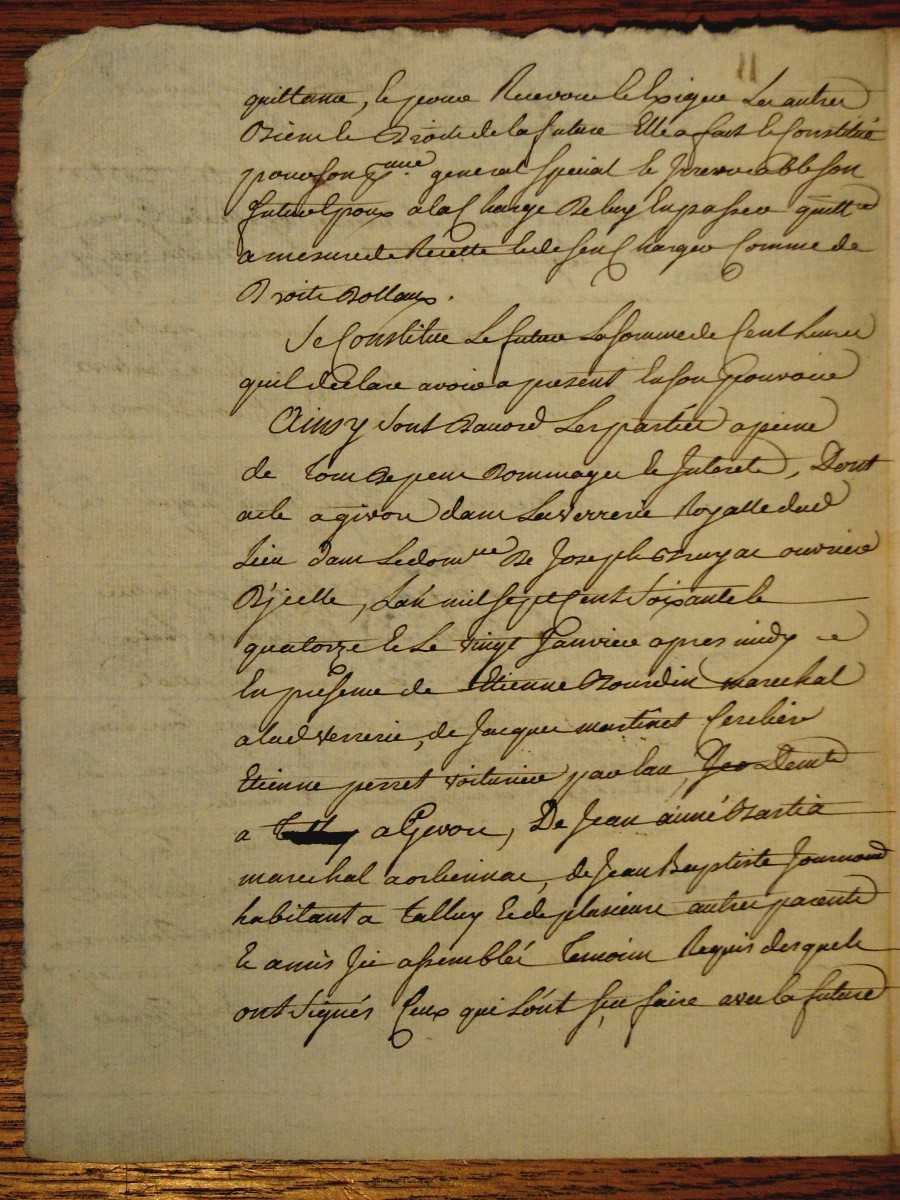 11
quittance, et pour Recevoir et Exiger Les autres
Biens et Droits de la future Elle a fait et Constitué
pour son p.reur general special et Irrevocable son
futur Epoux a la Charge De luy En passer quittce
a mesure de Recette et de s'en Charger Comme de
Droits Dottaux.
Se Constitue Le futur La somme de Cent Livres
quil déclare avoir a présent En son pouvoir
Ainsy sont Daccord Les parties a peine
de tous Depens Dommages et Interets, Dont
acte a givors dans La Verrerie Royalle dud
Lieu dans Le dom.lle De Joseph ouvrier
D'jcelle, L'an mil sept Cent soixante et
quatorze et Le vingt Janvier apres midy
En présence de Etienne Bourdin marechal
a lad verrerie, de Jacques martinet
Etienne perret voiturier par Eau
a a Givors, De Jean aimé
marechal a orliennac, de Jean Baptiste
habitant a talluy et de plusieurs autres parents
et amis Jci assemblés temoins Requis desquels
ont signés Ceux qui L'ont sçu faire avec la future